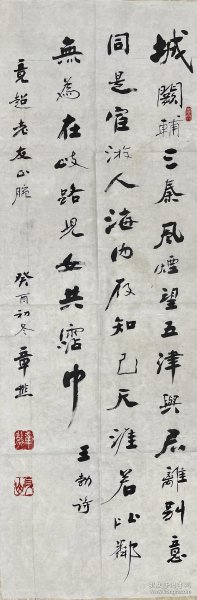 城闕輔三秦風煙望五津與君離別意
同是宦游人海内存知己天涯若比鄰
無為在岐路兒女共霑巾
王勃詩
竟超老友正腕
癸酉初冬
章